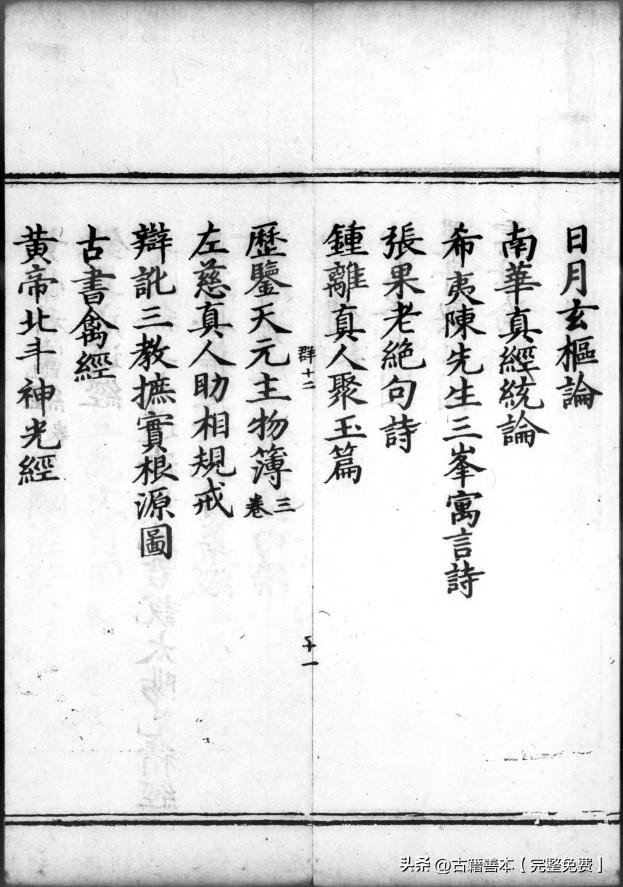 日月玄樞論
南華真經統論
希夷陳先生三峯寓言詩
張果老絶句詩
鍾離真人聚玉篇
群十二
歷鑒天元主物簿三卷
左慈真人助相規戒
辯訛三教摭實根源圖
古書禽經
黃帝北斗神光經
头条 @古籍善本【完整免费】